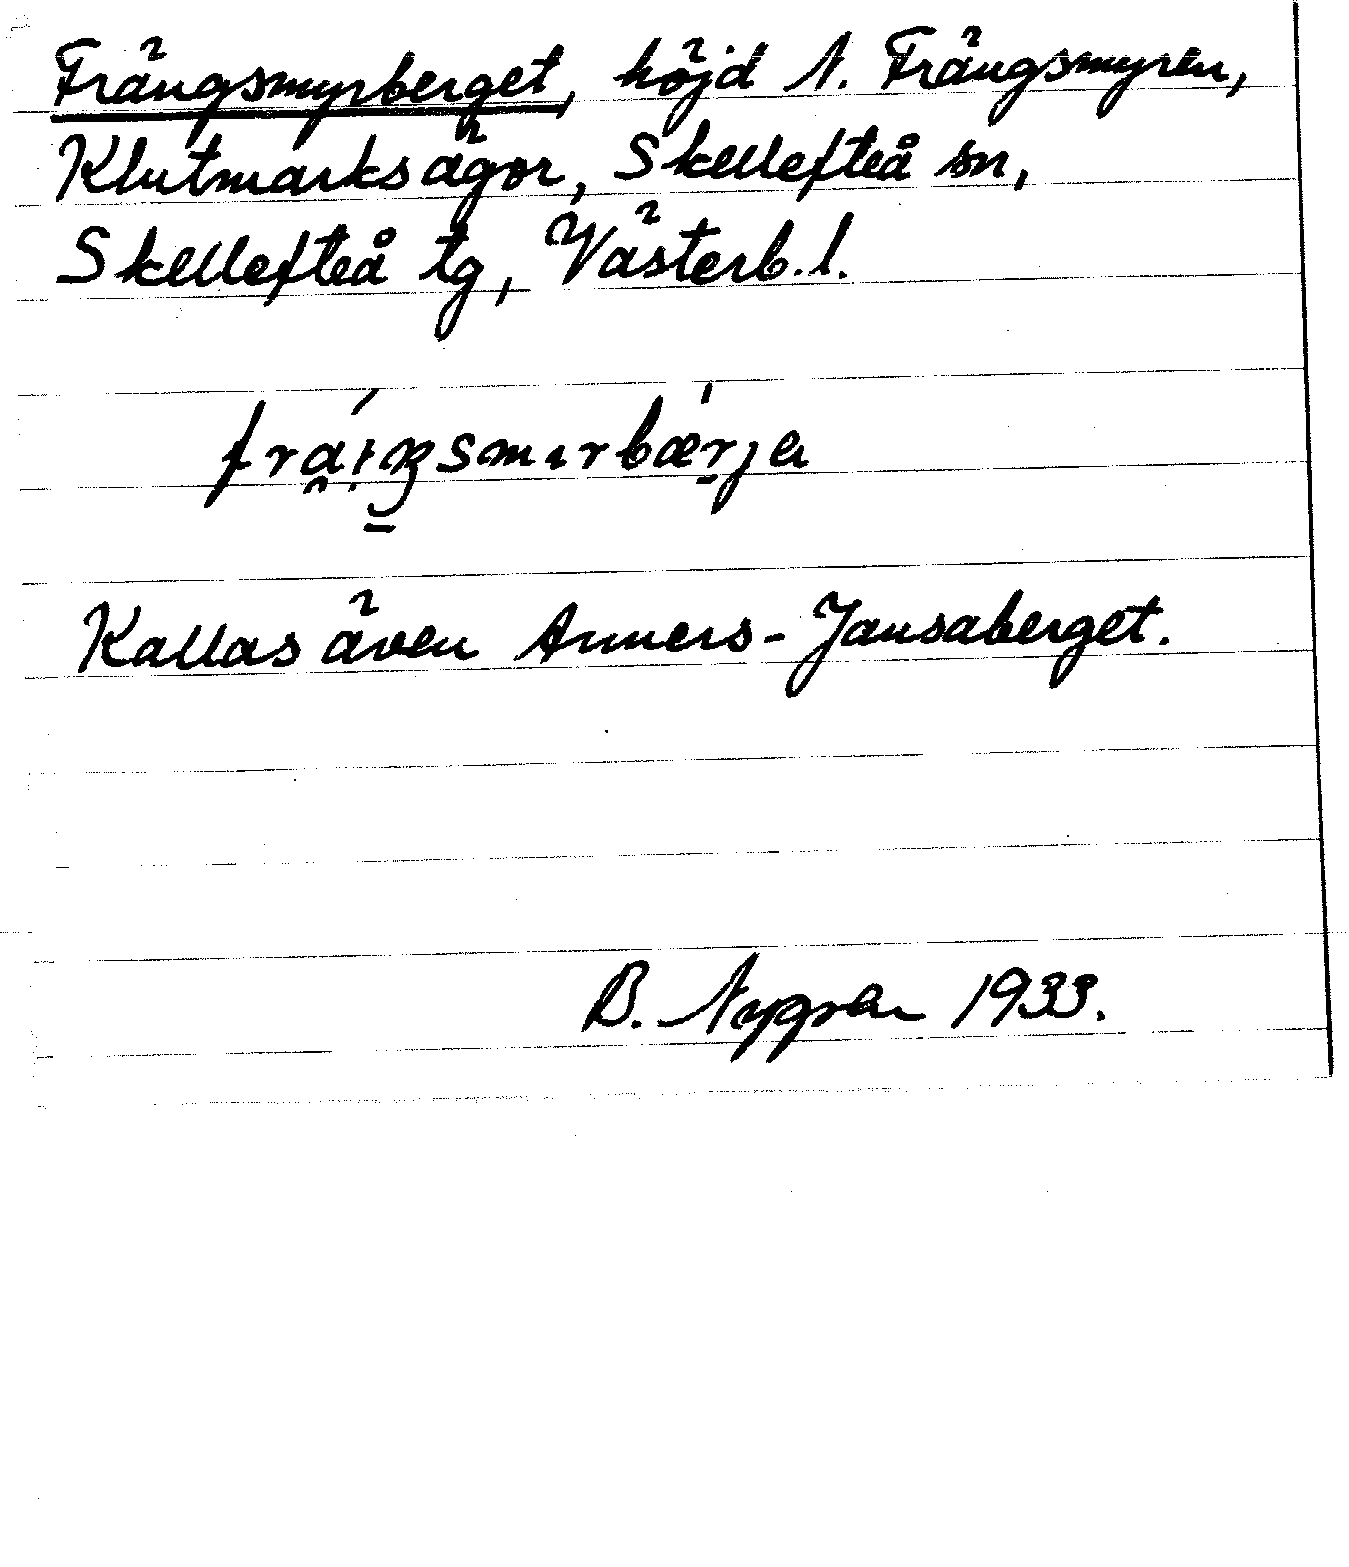 Frängsmyrberget, höjd N. Frängsmyren,
Klutmarksägor, Skellefteå sn,
Skellefteå tg, Västerb. l.
Kallas även Anners-Jansaberget.
B. Nygren 1933.